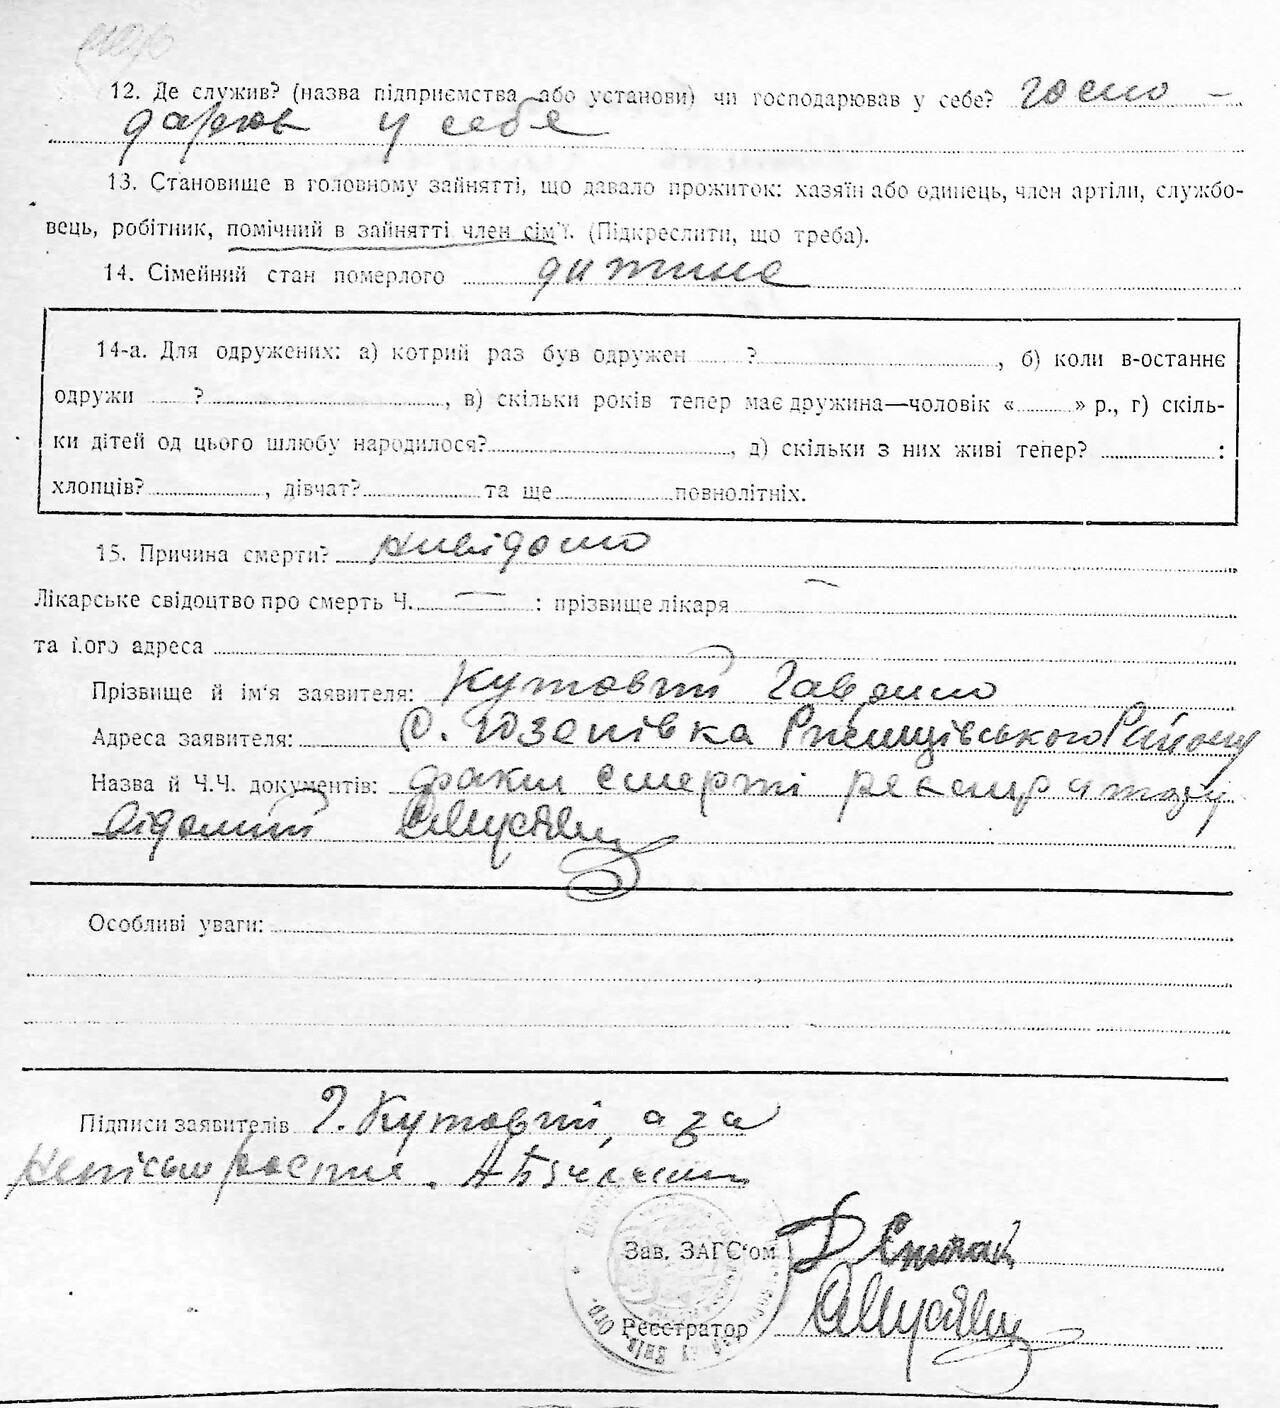 12. Де служив? (назва підприємства або установи) чи господарював у себе? госпо-
дарюв у себе
13. Становище в головному зайнятті, що давало прожиток: хазяїн або одинець, член артіли, службо-
вець, робітник, помічний в зайнятті член сім'ї. (Підкреслити, що треба).
14. Сімейний стан померлого дитина
14-а. Для одружених: а) котрий раз був одружен ? , б) коли в-останнє
одружи ? , в) скільки років тепер має дружина—чоловік « » р., г) скіль-
ки дітей од цього шлюбу народилося? , д) скільки з них живі тепер? :
хлопців? , дівчат? та ще повнолітніх.
15. Причина смерти? нивідомо
Лікарське свідоцтво про смерть Ч. — : прізвище лікаря —
та його адреса
Прізвище й ім'я заявителя: Кутовий Гаврило
Адреса заявителя: с. Юзепівка Ржищівського Району
Назва й Ч.Ч. документів: факт смерті реєстратору
відомий
Особливі уваги:
Підписи заявителів Г. Кутовий, а за
неписьменого
Зав. ЗАГС'ом
Реєстратор